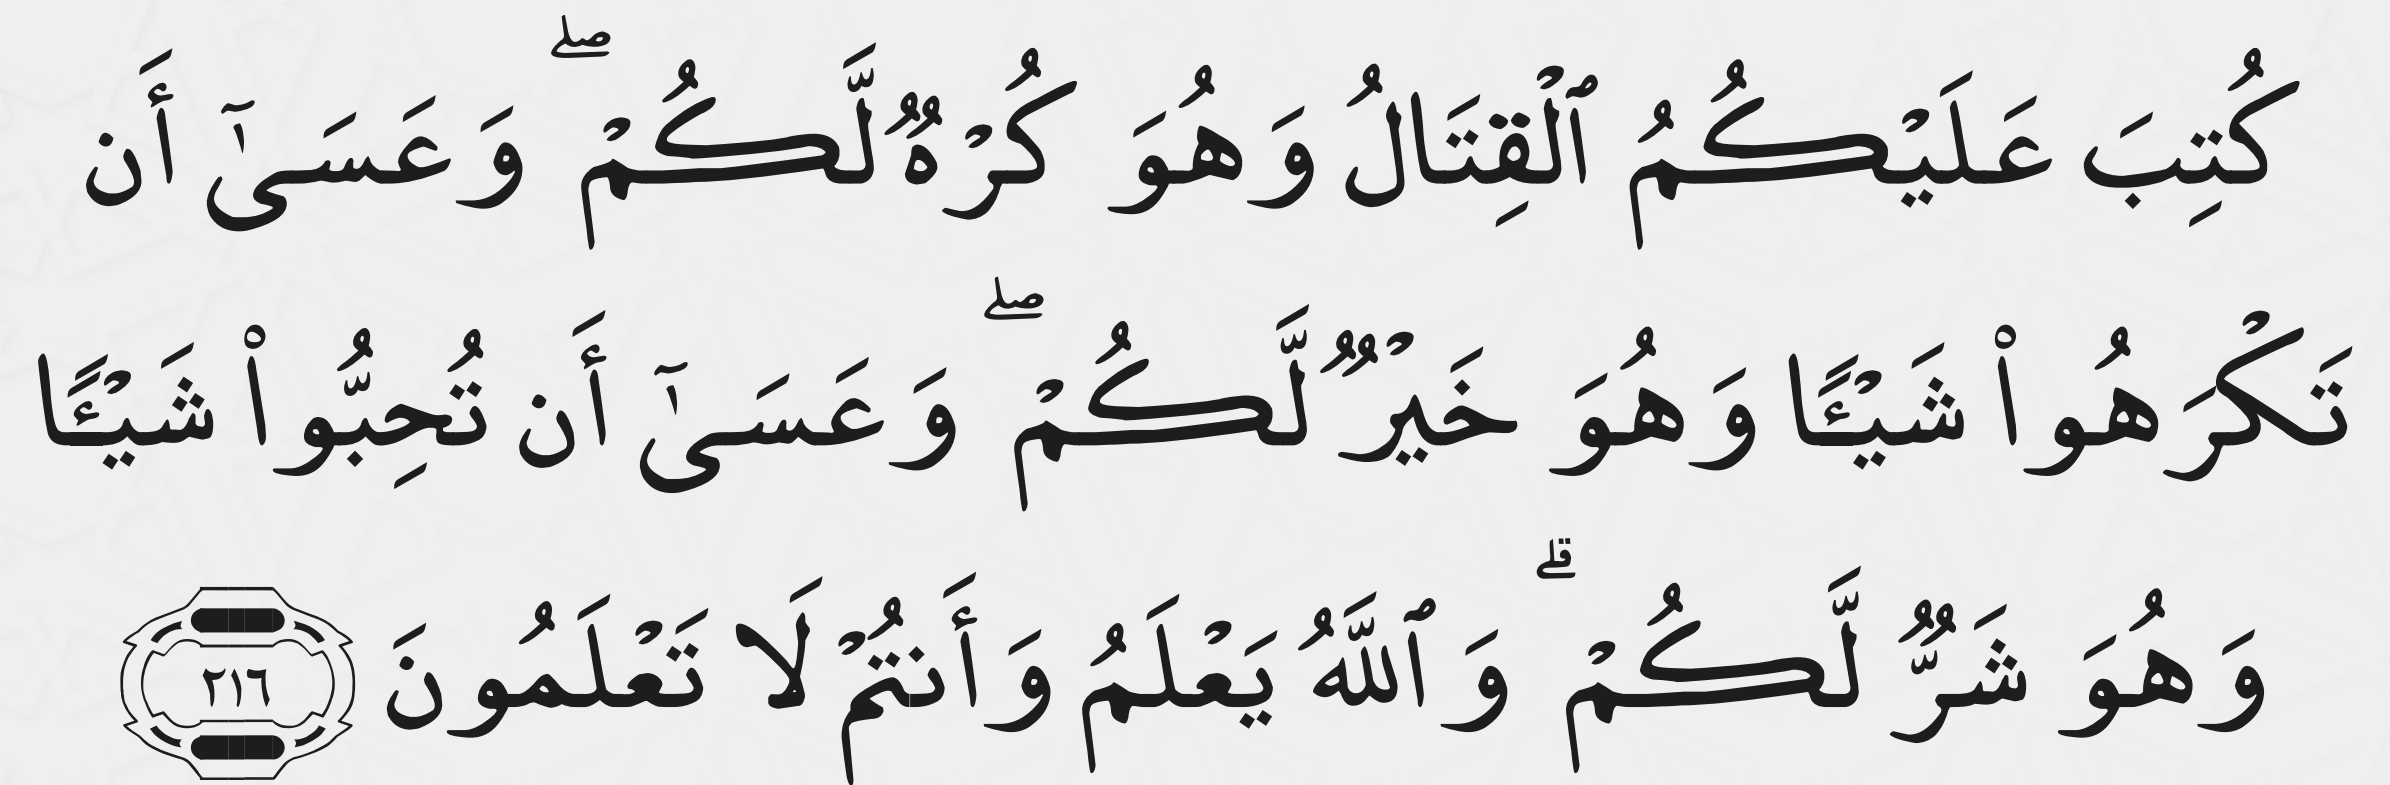 كُتِبَ عَلَيْكُمُ ٱلْقِتَالُ وَهُوَ كُرْهٌۭ لَّكُمْ ۖ وَعَسَىٰٓ أَن
تَكْرَهُوا۟ شَيْـًۭٔا وَهُوَ خَيْرٌۭ لَّكُمْ ۖ وَعَسَىٰٓ أَن تُحِبُّوا۟ شَيْـًۭٔا
وَهُوَ شَرٌّۭ لَّكُمْ ۗ وَٱللَّهُ يَعْلَمُ وَأَنتُمْ لَا تَعْلَمُونَ ٢١٦